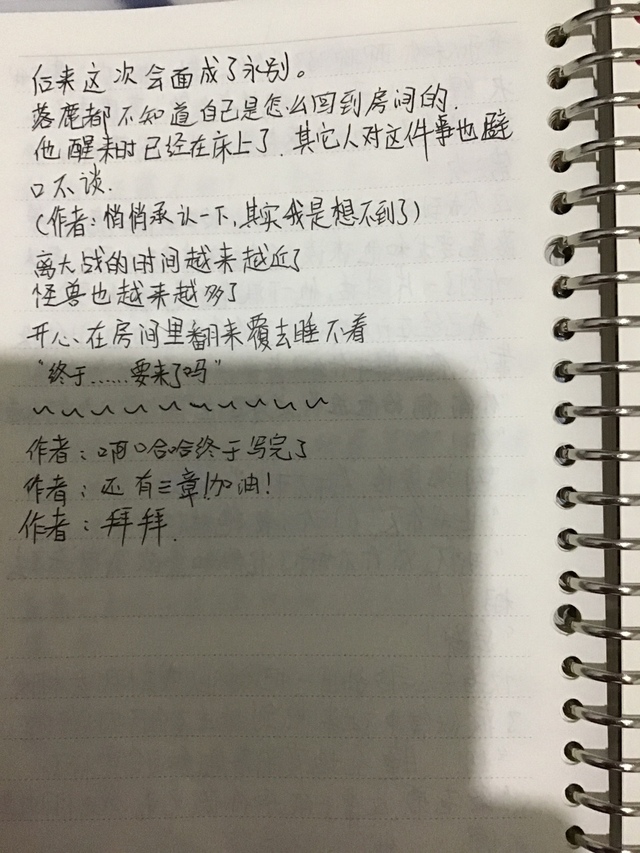 后来这次会面成了永别。
落鹿都不知道自己是怎么回到房间的.
他醒来时已经在床上了.其它人对这件事也避
口不谈.
(作者:悄悄承认一下,其实我是想不到了)
离大战的时间越来越近了
怪兽也越来越多了
开心在房间里翻来覆去睡不着
“终于……要来了吗”
作者:啊哈哈终于写完了
作者:还有三章!加油!
作者:拜拜.